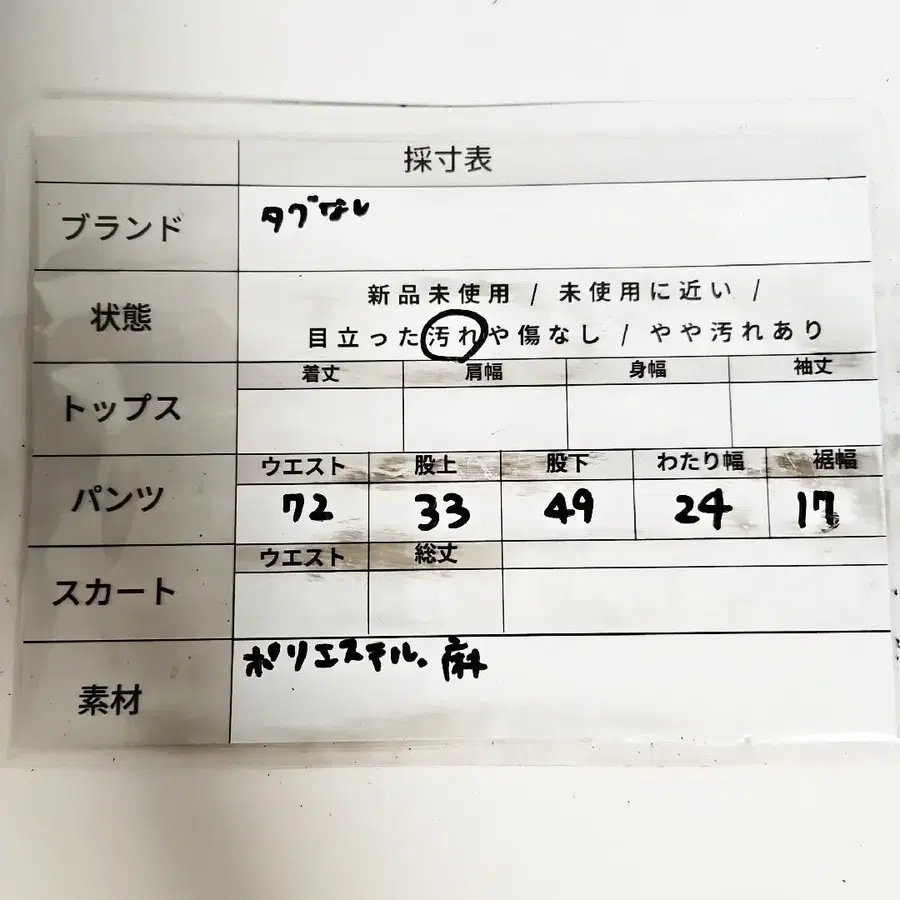 採寸表
ブランド タグなし
状態 新品未使用 / 未使用に近い /
目立った汚れや傷なし / やや汚れあり
トップス 着丈 肩幅 身幅 袖丈
パンツ ウエスト 股上 股下 わたり幅 裾幅
72 33 49 24 17
スカート ウエスト 総丈
素材 ポリエステル. 麻